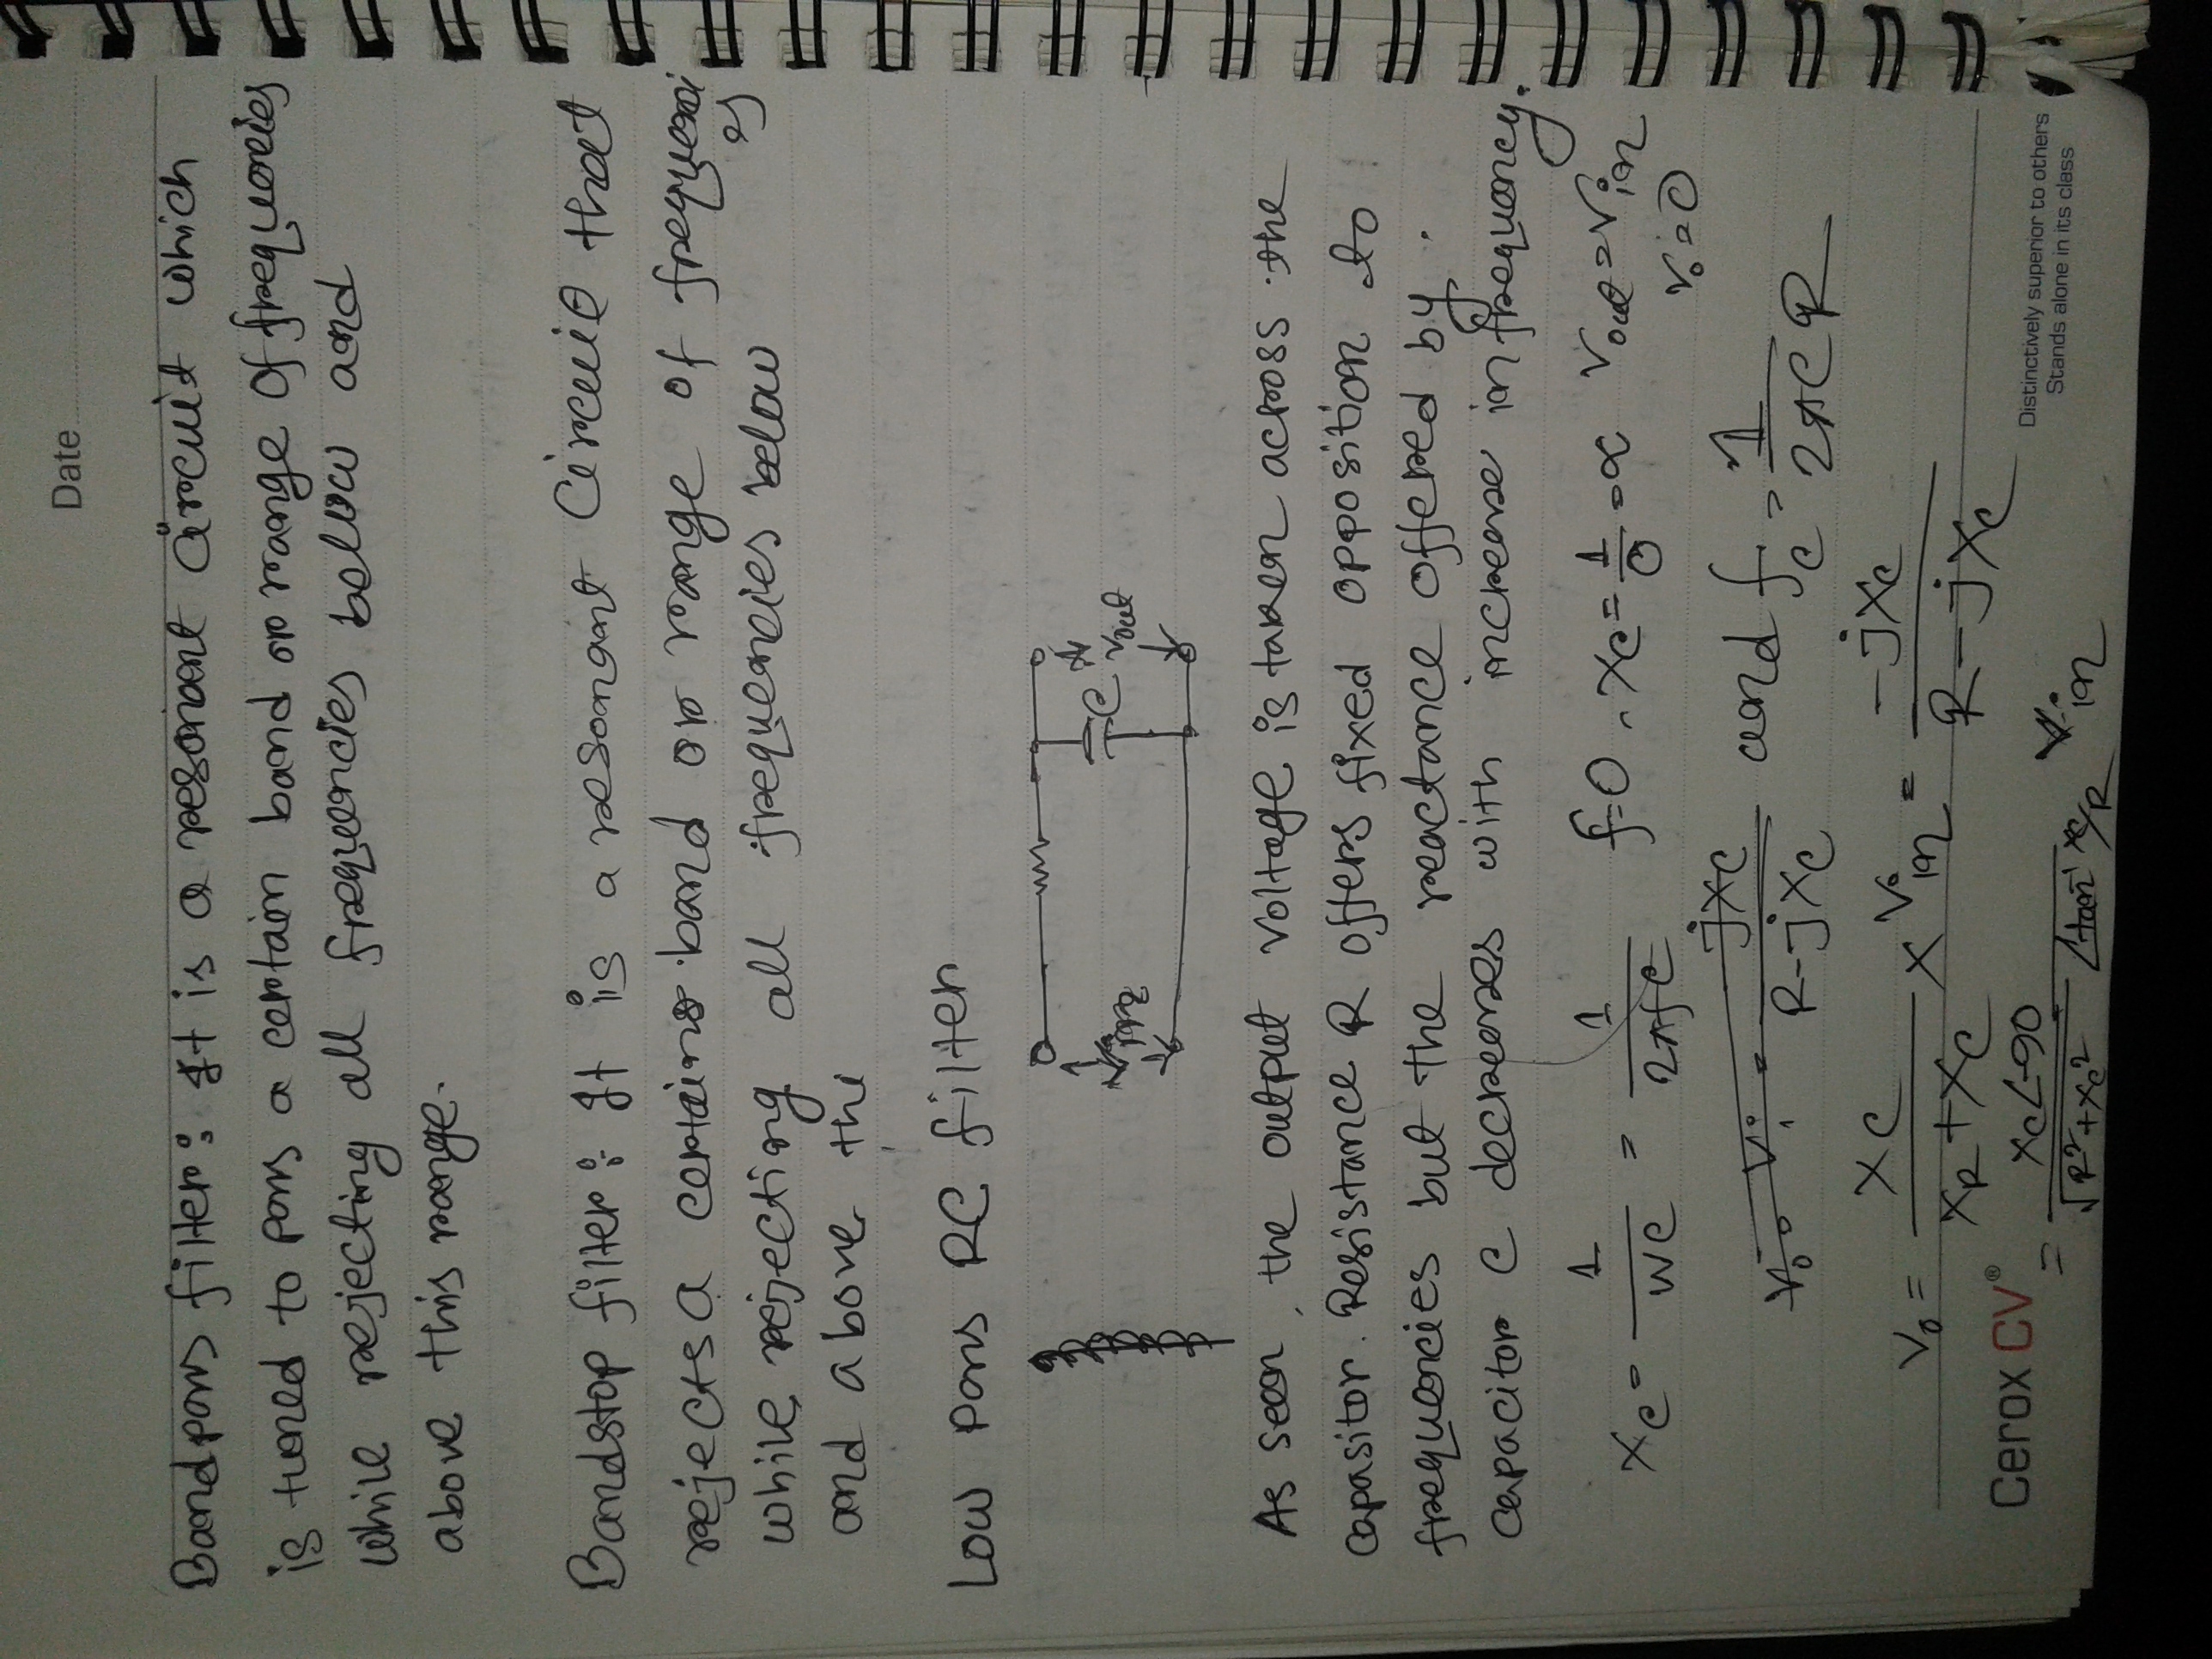 Date
Bandpass filter: It is a resonant circuit which
is tuned to pass a certain band or range of frequencies
while rejecting all frequencies below and
above this range.
Bandstop filter:- It is a resonant circuit that
rejects a certains band or range of frequenci
es
while rejecting all frequencies below
and above the
Low Pass RC filter
Vin
C
Vout
As seen, the output voltage is taken across the
capasitor. Resistance R offers fixed opposition to
frequencies but the reactance offered by
capacitor C decreases with increase in frequency.
Xc = 1/WC = 1/2πfC f=0, Xc = 1/0 = ∝ Vout = Vin
Vo = 0
Vo = Vi = jXc/R-jXc and fc = 1/2πCR
Vo = XC/XR+XC × Vin = -jXc/R-jXc
= Xc∠-90/√R²+Xc² ∠tan⁻¹ Xc/R Vin
Cerox CV®
Distinctively superior to others
Stands alone in its class